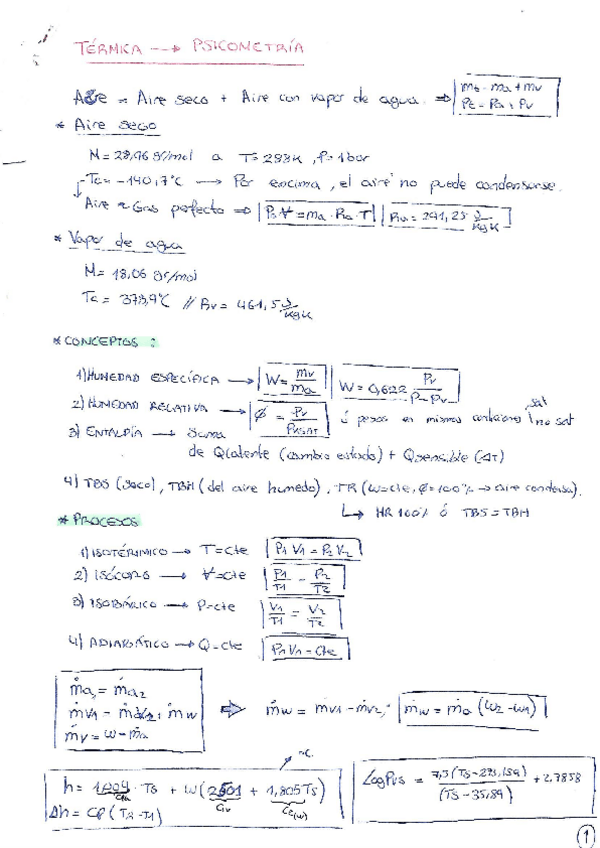 TÉRMICA --→ PSICOMETRÍA
Aire = Aire seco + Aire con vapor de agua. ⇒ mt = ma + mv
Pt = Pa + Pv
* Aire seco
M = 28,96 gr/mol a T = 288K, P = 1 bar
Tc = -140,7°C → Por encima, el aire no puede condensarse.
Aire ≈ Gas perfecto ⇒ P·V = ma · Ra · T
* Vapor de agua
M = 18,06 gr/mol
Tc = 373,9°C // Rv = 461,5 J/kgK
* CONCEPTOS :
1) HUMEDAD ESPECÍFICA → W = mv/ma W = 0,622 Pv/(P-Pv)
2) HUMEDAD RELATIVA → ϕ = Pv/Pvsat ó pesos en mismas condiciones sat / no sat
3) ENTALPÍA → Suma
de Qlatente (cambio estado) + Qsensible (ΔT)
4) TBS (seco), TBH (del aire humedo), TR (w=cte, ϕ=100% → aire condensa).
↳ HR 100% ó TBS = TBH
* PROCESOS
1) ISOTÉRMICO → T = cte P1 V1 = P2 V2
2) ISÓCORO → V = cte P1/T1 = P2/T2
3) ISOBÁRICO → P = cte V1/T1 = V2/T2
4) ADIABÁTICO → Q = cte P1 V1 = cte
ṁa1 = ṁa2
ṁw = ṁv1 - ṁv2; ṁw = ṁa (w2 - w1)
ṁv = w - ṁa
h = 1,004 · Ts + w(2501 + 1,805 Ts)
Δh = Cp (T2 - T1)
Log Pvs = 7,5 (Ts - 273,159) / (Ts - 35,89) + 2,7858
1